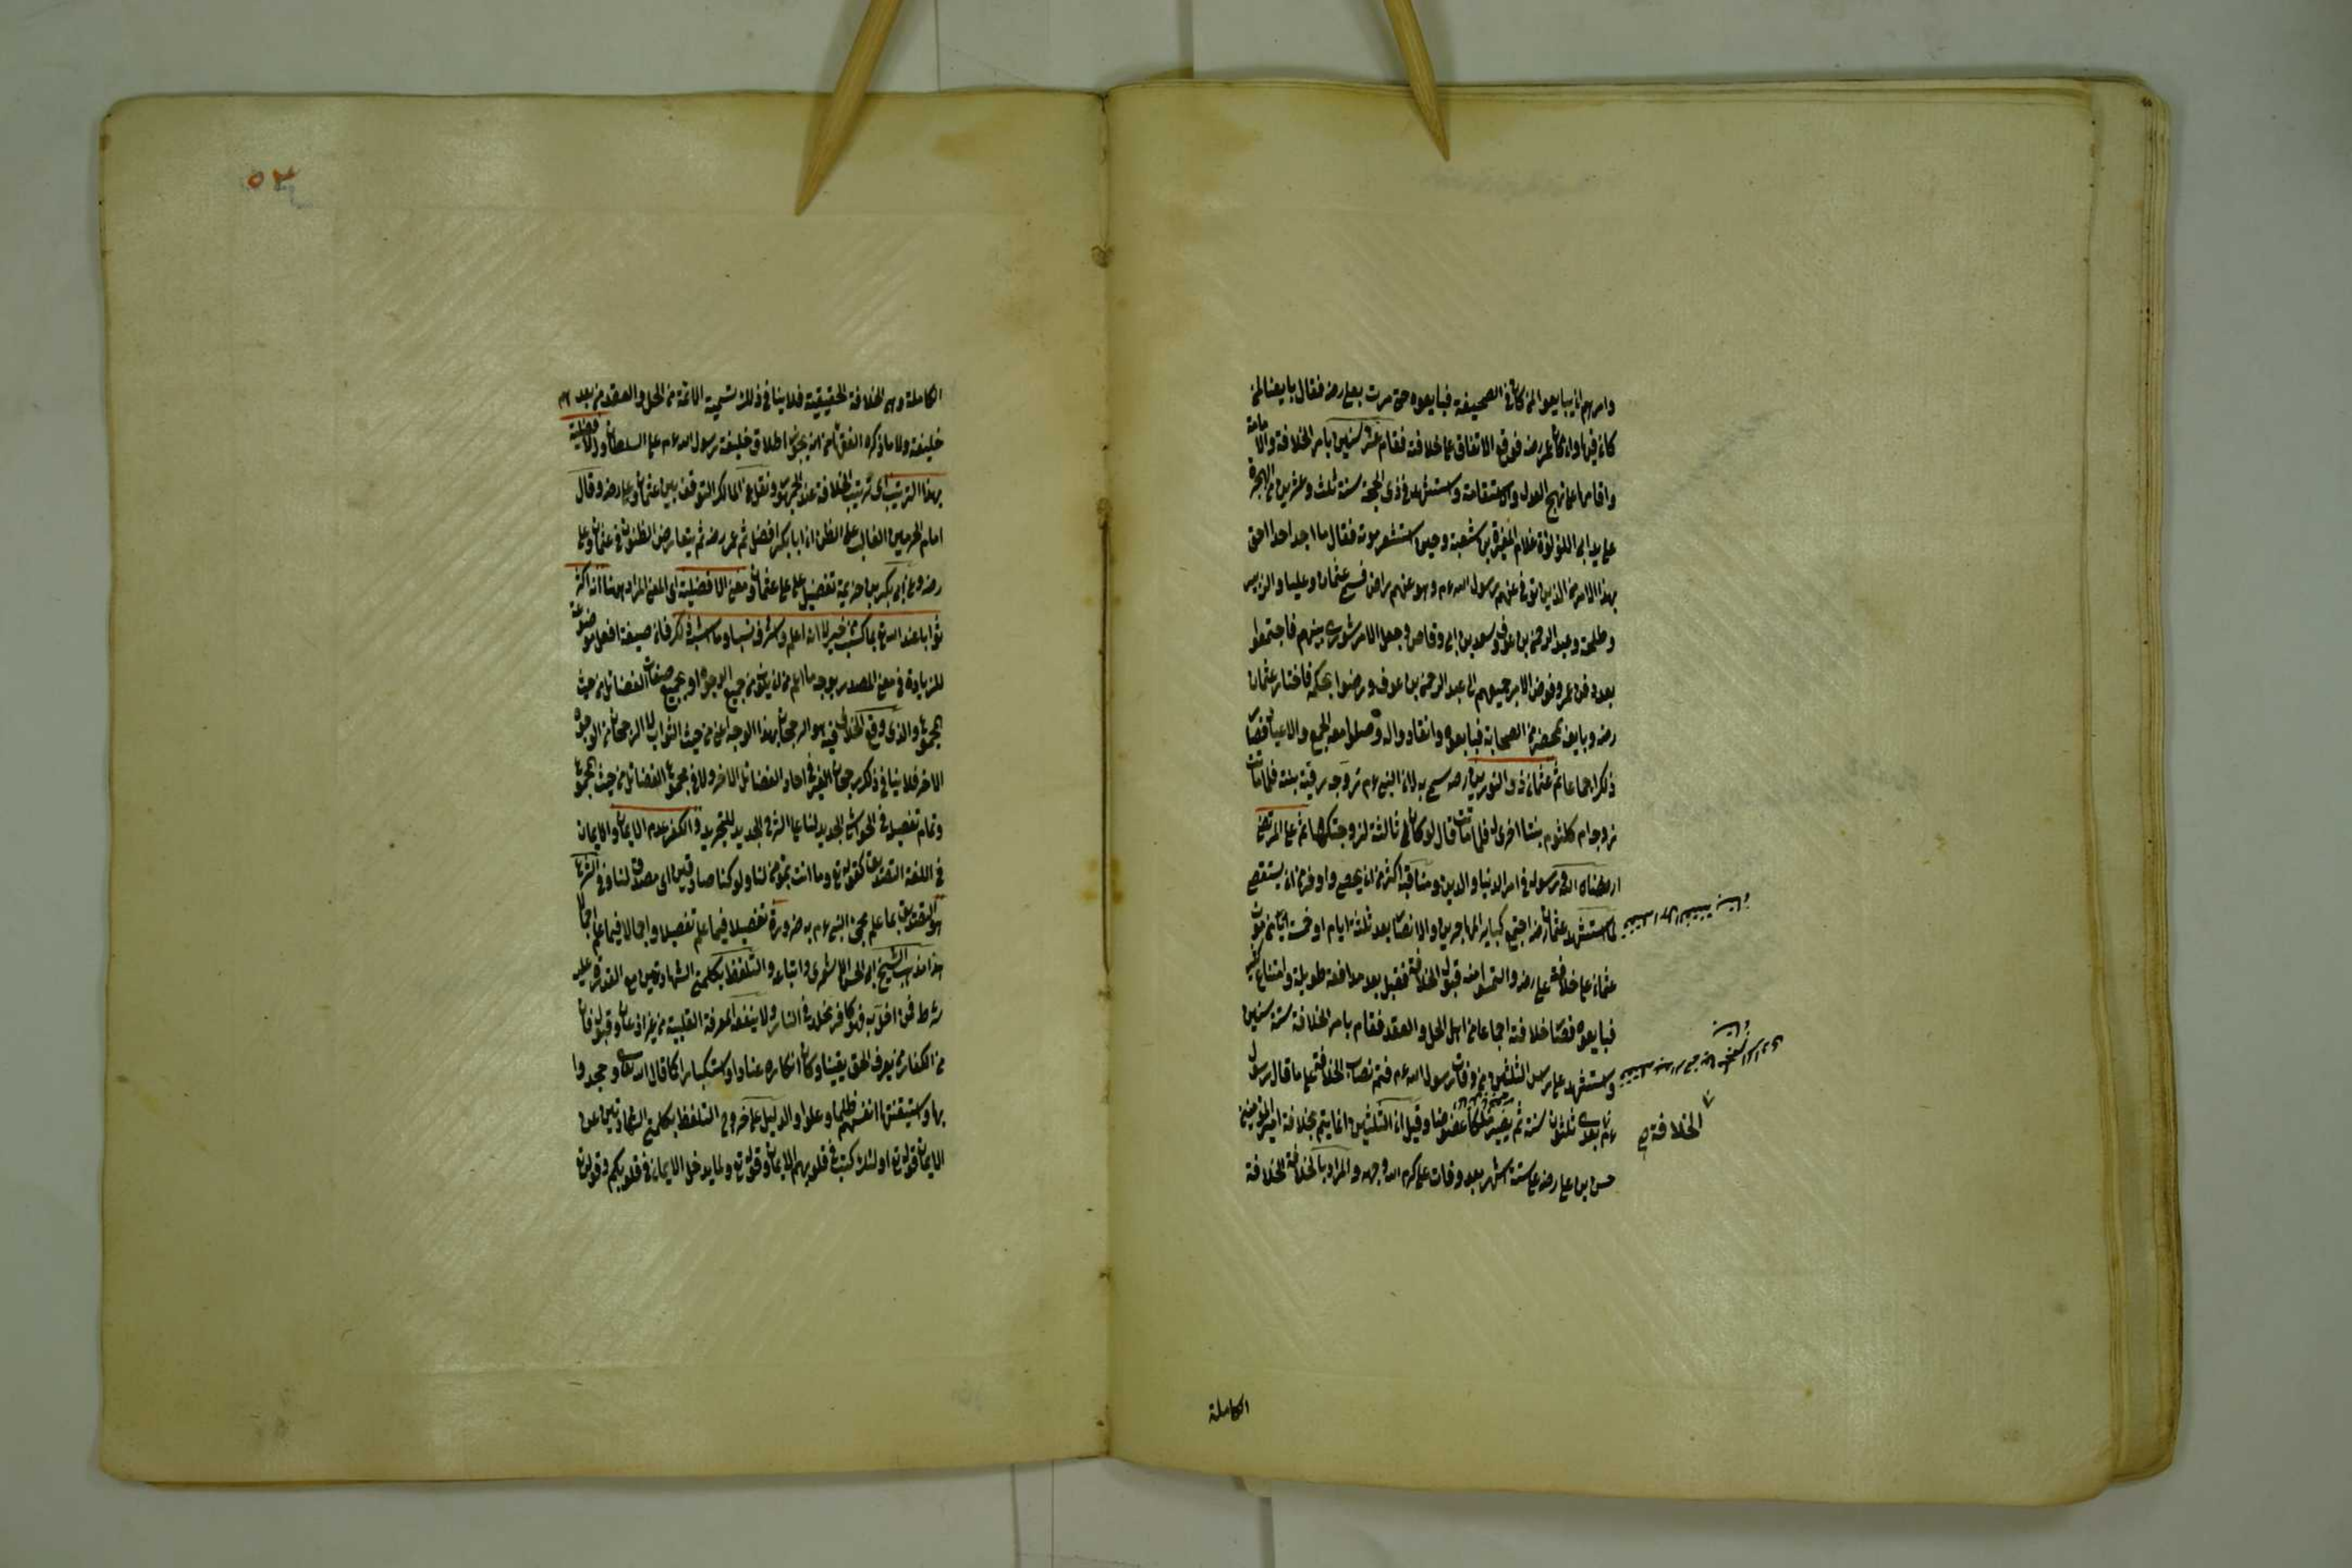 وامرهم ان يبايعوا لمن كان في الصحيفة فبايعوه حتى مرت بعلي رضه فقال بايعنا لمن
كان فيها وان كان عمر رضه فوقع الاتفاق على خلافته فقام عشر سنين بامر الخلافة والامامة
واقامها على نهج العدل والاستقامة واستشهد في ذي الحجة سنة ثلث وعشرين من الهجرة
على يد ابي اللؤلؤة غلام المغيرة بن شعبة وحين استشعر موته فقال ما اجد احدا احق
بهذا الامر من الذين توفي عنهم رسول الله عم وهو عنهم راض فسمى عثمان وعليا والزبير
وطلحة وعبد الرحمن بن عوف وسعد بن ابي وقاص وجعل الامر شورى بينهم فاجتمعوا
بعد دفن عمر وفوض الامر جميعهم الى عبد الرحمن بن عوف ورضوا بحكمه فاختار عثمان
رضه وبايعه بمحضر من الصحابة فبايعوه وانقادوا له وصلوا معه الجمع والاعياد فصار
ذلك اجماعا ثم عثمان ذو النورين رضه سمي به لان النبي عم تزوجه رقية بنته فلما ماتت
زوجه ام كلثوم بنتا اخرى له فلما ماتت قال لو كان لي ثالثة لزوجتكها ثم علي المرتضى
ارتضاه الله ورسوله في امر الدنيا والدين ومناقبه اكثر من ان يحصى واوفر من ان يستقصى
لما استشهد عثمان رضه اجتمع كبار المهاجرين والانصار بعد ثلثة ايام او خمسة ايام من موت
عثمان على خلافة علي رضه والتمسوا منه قبول الخلافة فقبل بعد مدافعة طويلة وامتناع كثير
فبايعوه فصار خلافته اجماعا من اهل الحل والعقد فقام بامر الخلافة ستة سنين
واستشهد على رأس الثلثين من وفات رسول الله عم فتم نصاب الخلافة على ما قال رسول
عم بعدي ثلثون سنة ثم يصير ملكا عضوضا وقيل ان الثلثين انما يتم بخلافة امير المؤمنين
حسن بن علي رضه على ستة اشهر بعد وفات علي كرم الله وجهه والمراد بالخلافة الخلافة
الخلافة صح
الكاملة
٥٣
الكاملة وهي الخلافة الحقيقية فلا ينافي ذلك تسمية الائمة من الحل والعقد من بعدهم
خليفة ولا ما ذكره الفقهاء من انه يجوز اطلاق خليفة رسول الله عم على السلطان والافضلية
بهذا الترتيب اي ترتيب الخلافة عند الجمهور ونقل عن المالك التوقف بين عثمان وعلي رضه وقال
امام الحرمين الغالب على الظن ان ابا بكر افضل ثم عمر رضه ثم يتعارض الظنون في عثمان وعلي
رضه وعن ابي بكر بن خزيمة تفضيل علي على عثمان ومعنى الافضلية اي المعنى المراد ههنا انه اكثر
ثوابا عند الله تع بما كسب من خير لا انه اعلم واشرف نسبا وما اشبه ذلك فان صيغة افعل موضوعة
للزيادة في معنى المصدر بوجه ما اعم من ان يكون من جميع الوجوه او بجميع صفات الفضائل من حيث
المجموع والذي وقع الخلاف فيه هو الرجحان بهذا الوجه اعني من حيث الثواب لا الرجحان من الوجوه
الاخر فلا ينافي ذلك رجحان الغير في احاد الفضائل الاخر ولا في مجموع الفضائل من حيث المجموع
وتمام تفصيله في الحواشي الجديدة لنا على الشرح الجديد للتجريد والكفر عدم الايمان والايمان
في اللغة التصديق كقوله تع وما انت بمؤمن لنا ولو كنا صادقين اي مصدق لنا وفي الشرع
هو التصديق بما علم مجيء النبي عم به ضرورة تفصيلا فيما علم تفصيلا واجمالا فيما علم اجمالا
هذا مذهب الشيخ ابي الحسن الاشعري واتباعه والتلفظ بكلمتي الشهادتين مع القدرة عليه
شرط فمن اخل به فهو كافر مخلد في النار ولا ينفعه المعرفة القلبية من غير اذعان وقبول فان
من الكفار من يعرف الحق يقينا وكان انكاره عنادا واستكبارا كما قال الله تع وجحدوا
بها واستيقنتها انفسهم ظلما وعلوا والدليل على خروج التلفظ بكلمتي الشهادتين عن
الايمان قوله تع اولئك كتب في قلوبهم الايمان وقوله تع ولما يدخل الايمان في قلوبكم وقوله تع